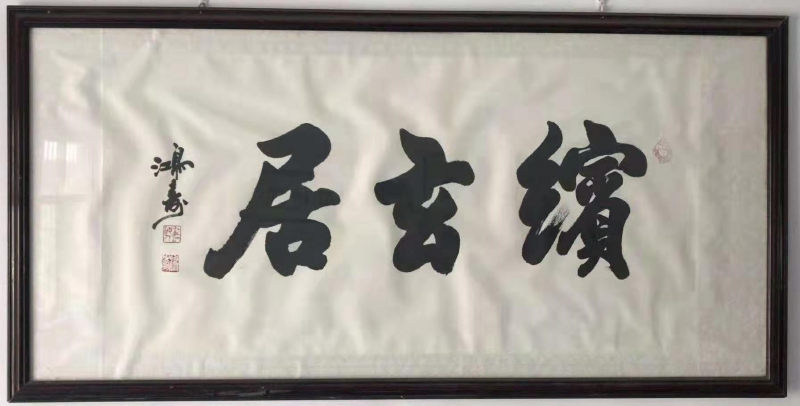 繽玄居
鴻壽